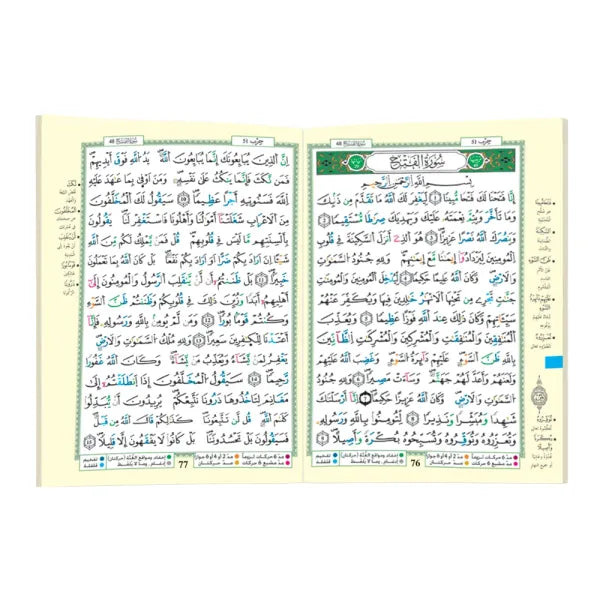 حزب 51
سُورَةُ الفَتْحِ 48
سُورَةُ الْفَتْحِ
بِسْمِ اللَّهِ الرَّحْمَٰنِ الرَّحِيمِ
إِنَّا فَتَحْنَا لَكَ فَتْحًا مُّبِينًا ١ لِّيَغْفِرَ لَكَ اللَّهُ مَا تَقَدَّمَ مِن ذَنۢبِكَ
وَمَا تَأَخَّرَ وَيُتِمَّ نِعْمَتَهُۥ عَلَيْكَ وَيَهْدِيَكَ صِرَٰطًا مُّسْتَقِيمًا ٢
وَيَنصُرَكَ اللَّهُ نَصْرًا عَزِيزًا ٣ هُوَ الَّذِىٓ أَنزَلَ السَّكِينَةَ فِى قُلُوبِ
الْمُؤْمِنِينَ لِيَزْدَادُوٓا۟ إِيمَٰنًا مَّعَ إِيمَٰنِهِمْ وَلِلَّهِ جُنُودُ السَّمَٰوَٰتِ
وَالْأَرْضِ وَكَانَ اللَّهُ عَلِيمًا حَكِيمًا ٤ لِّيُدْخِلَ الْمُؤْمِنِينَ وَالْمُؤْمِنَٰتِ
جَنَّٰتٍ تَجْرِى مِن تَحْتِهَا الْأَنْهَٰرُ خَٰلِدِينَ فِيهَا وَيُكَفِّرَ عَنْهُمْ
سَيِّـَٔاتِهِمْ وَكَانَ ذَٰلِكَ عِندَ اللَّهِ فَوْزًا عَظِيمًا ٥ وَيُعَذِّبَ
الْمُنَٰفِقِينَ وَالْمُنَٰفِقَٰتِ وَالْمُشْرِكِينَ وَالْمُشْرِكَٰتِ الظَّآنِّينَ
بِاللَّهِ ظَنَّ السَّوْءِ عَلَيْهِمْ دَآئِرَةُ السَّوْءِ وَغَضِبَ اللَّهُ عَلَيْهِمْ
وَلَعَنَهُمْ وَأَعَدَّ لَهُمْ جَهَنَّمَ وَسَآءَتْ مَصِيرًا ٦ وَلِلَّهِ جُنُودُ
السَّمَٰوَٰتِ وَالْأَرْضِ وَكَانَ اللَّهُ عَزِيزًا حَكِيمًا ٧ إِنَّآ أَرْسَلْنَٰكَ
شَٰهِدًا وَمُبَشِّرًا وَنَذِيرًا ٨ لِّتُؤْمِنُوا۟ بِاللَّهِ وَرَسُولِهِۦ
وَتُعَزِّرُوهُ وَتُوَقِّرُوهُ وَتُسَبِّحُوهُ بُكْرَةً وَأَصِيلًا ٩
76
حزب 51
سُورَةُ الفَتْحِ 48
إِنَّ الَّذِينَ يُبَايِعُونَكَ إِنَّمَا يُبَايِعُونَ اللَّهَ يَدُ اللَّهِ فَوْقَ أَيْدِيهِمْ
فَمَن نَّكَثَ فَإِنَّمَا يَنكُثُ عَلَىٰ نَفْسِهِۦ وَمَنْ أَوْفَىٰ بِمَا عَٰهَدَ عَلَيْهُ
اللَّهَ فَسَيُؤْتِيهِ أَجْرًا عَظِيمًا ١٠ سَيَقُولُ لَكَ الْمُخَلَّفُونَ
مِنَ الْأَعْرَابِ شَغَلَتْنَآ أَمْوَٰلُنَا وَأَهْلُونَا فَاسْتَغْفِرْ لَنَا يَقُولُونَ
بِأَلْسِنَتِهِم مَّا لَيْسَ فِى قُلُوبِهِمْ قُلْ فَمَن يَمْلِكُ لَكُم مِّنَ اللَّهِ
شَيْـًٔا إِنْ أَرَادَ بِكُمْ ضَرًّا أَوْ أَرَادَ بِكُمْ نَفْعًۢا بَلْ كَانَ اللَّهُ بِمَا تَعْمَلُونَ
خَبِيرًۢا ١١ بَلْ ظَنَنتُمْ أَن لَّن يَنقَلِبَ الرَّسُولُ وَالْمُؤْمِنُونَ إِلَىٰٓ
أَهْلِيهِمْ أَبَدًا وَزُيِّنَ ذَٰلِكَ فِى قُلُوبِكُمْ وَظَنَنتُمْ ظَنَّ السَّوْءِ
وَكُنتُمْ قَوْمًۢا بُورًا ١٢ وَمَن لَّمْ يُؤْمِنۢ بِاللَّهِ وَرَسُولِهِۦ فَإِنَّآ
أَعْتَدْنَا لِلْكَٰفِرِينَ سَعِيرًا ١٣ وَلِلَّهِ مُلْكُ السَّمَٰوَٰتِ وَالْأَرْضِ
يَغْفِرُ لِمَن يَشَآءُ وَيُعَذِّبُ مَن يَشَآءُ وَكَانَ اللَّهُ غَفُورًا
رَّحِيمًا ١٤ سَيَقُولُ الْمُخَلَّفُونَ إِذَا انطَلَقْتُمْ إِلَىٰ
مَغَانِمَ لِتَأْخُذُوهَا ذَرُونَا نَتَّبِعْكُمْ يُرِيدُونَ أَن يُبَدِّلُوا۟
كَلَٰمَ اللَّهِ قُل لَّن تَتَّبِعُونَا كَذَٰلِكُمْ قَالَ اللَّهُ مِن قَبْلُ
فَسَيَقُولُونَ بَلْ تَحْسُدُونَنَا بَلْ كَانُوا۟ لَا يَفْقَهُونَ إِلَّا قَلِيلًا ١٥
77